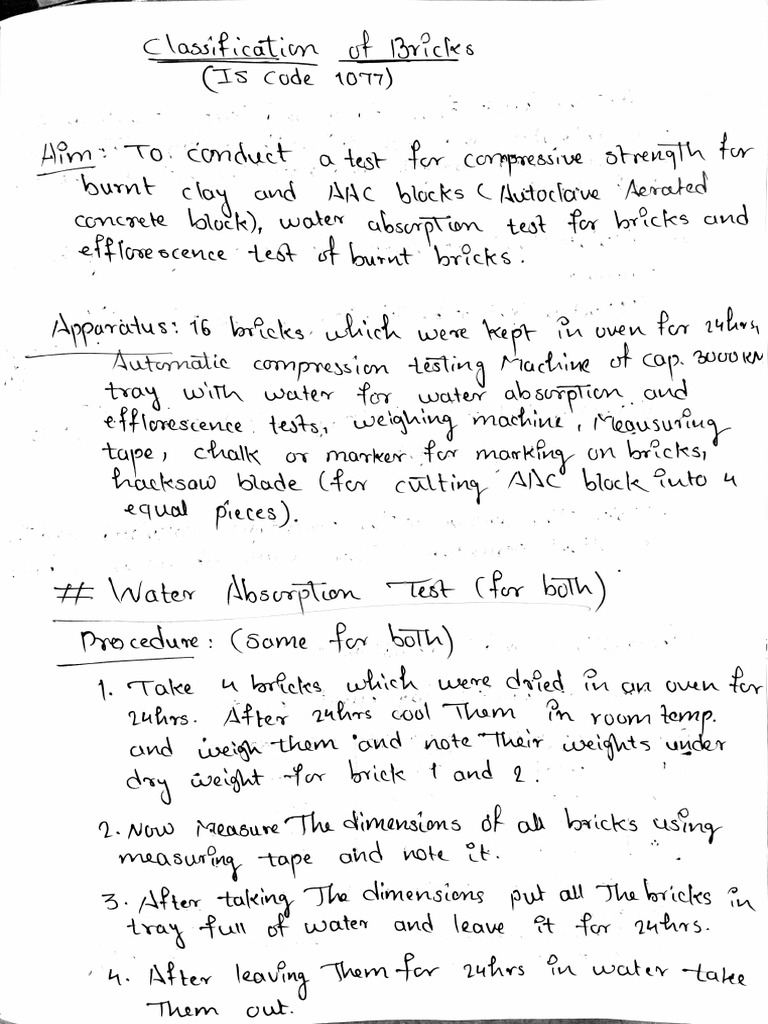 Classification of Bricks
(IS Code 1077)
Aim: To conduct a test for compressive strength for
burnt clay and AAC blocks (Autoclave Aerated
concrete block), water absorption test for bricks and
efflorescence test of burnt bricks.
Apparatus: 16 bricks which were kept in oven for 24hrs,
Automatic compression testing Machine of cap. 3000KN
tray with water for water absorption and
efflorescence tests, weighing machine, Meausuring
tape, chalk or marker for marking on bricks,
hacksaw blade (for cutting AAC block into 4
equal pieces).
# Water Absorption Test (for both)
Procedure: (same for both)
1. Take 4 bricks which were dried in an oven for
24hrs. After 24hrs cool them in room temp.
and weigh them and note their weights under
dry weight for brick 1 and 2.
2. Now Measure the dimensions of all bricks using
measuring tape and note it.
3. After taking the dimensions put all the bricks in
tray full of water and leave it for 24hrs.
4. After leaving them for 24hrs in water take
them out.